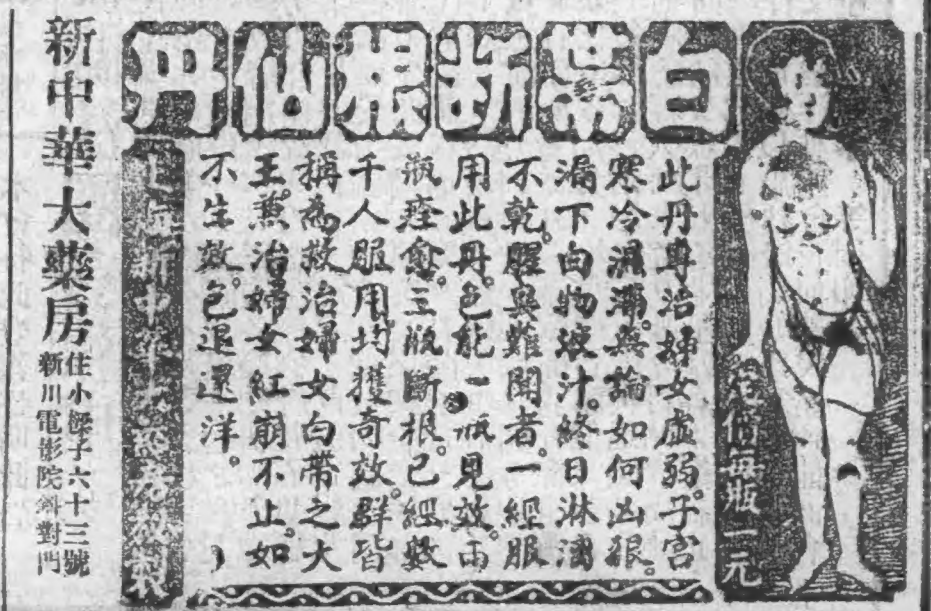 白帶斷根仙丹
定價每瓶一元
此丹專治婦女虛弱。子宮
寒冷濕滯。無論如何凶狠。
漏下白物液汁。終日淋漓
不乾。腥臭難聞者。一經服
用此丹。包能一瓶見效。兩
瓶痊愈。三瓶斷根。已經數
千人服用。均獲奇效。群皆
稱為救治婦女白帶之大
王。兼治婦女紅崩不止。如
不生效。包退還洋。
上海新中華大藥房發
新中華大藥房
住小樑子六十三號
新川電影院斜對門